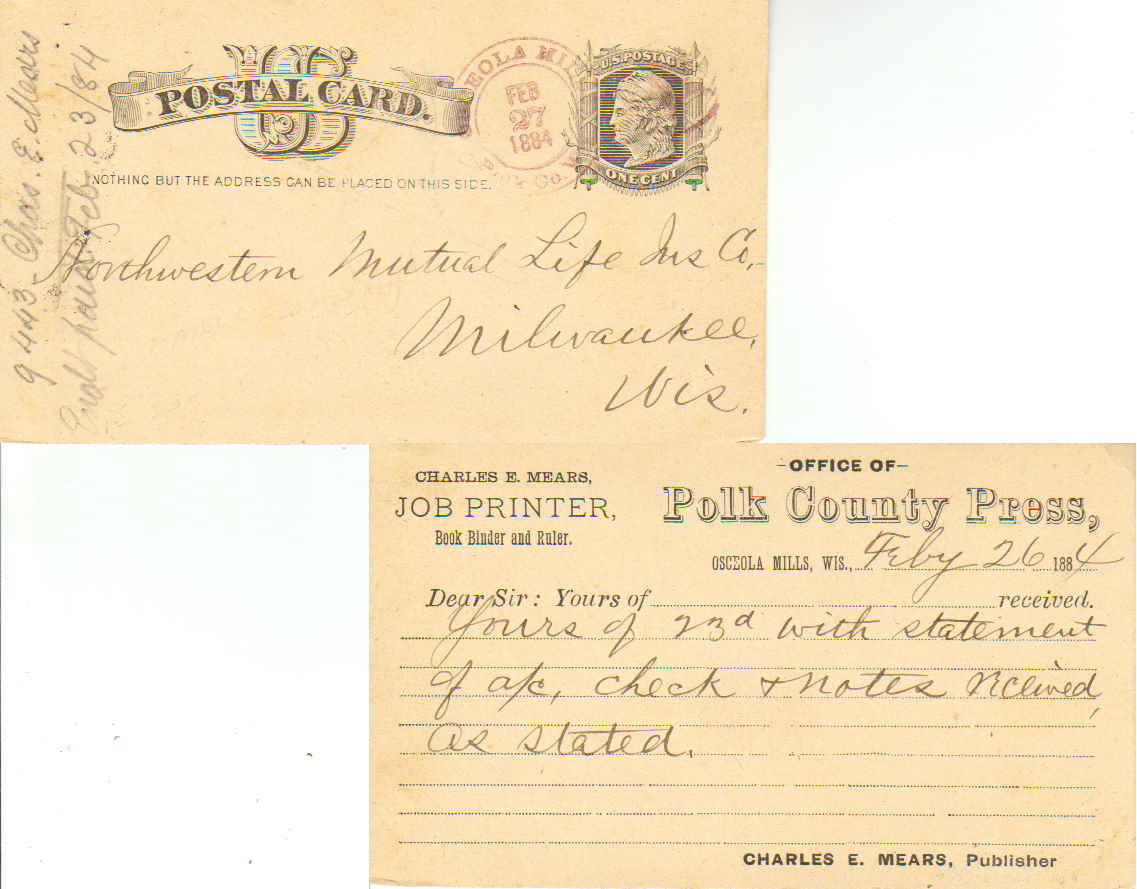 U S
POSTAL CARD.
NOTHING BUT THE ADDRESS CAN BE PLACED ON THIS SIDE.
EOLA MIL
FEB
27
1884
Co.
U.S. POSTAGE
ONE CENT
9443 Chas. E. Mears
Feb. 23/84
Northwestern Mutual Life Ins Co,
Milwaukee,
Wis.
CHARLES E. MEARS,
JOB PRINTER,
Book Binder and Ruler.
-OFFICE OF-
Polk County Press,
OSCEOLA MILLS, WIS., Feby 26 1884
Dear Sir: Yours of received.
Yours of 23d with statement
of a/c, check & notes received,
as stated.
CHARLES E. MEARS, Publisher